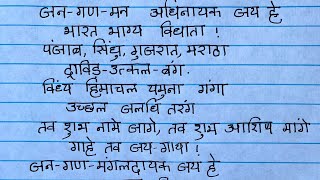 जन-गण-मन अधिनायक जय हे
भारत भाग्य विधाता !
पंजाब, सिंधु, गुजरात, मराठा
द्राविड़-उत्कल-बंग.
विंध्य हिमाचल यमुना गंगा
उच्छल जलधि तरंग
तव शुभ नामे जागे, तव शुभ आशिष मांगे
गाहे तव जय-गाथा !
जन-गण-मंगलदायक जय हे